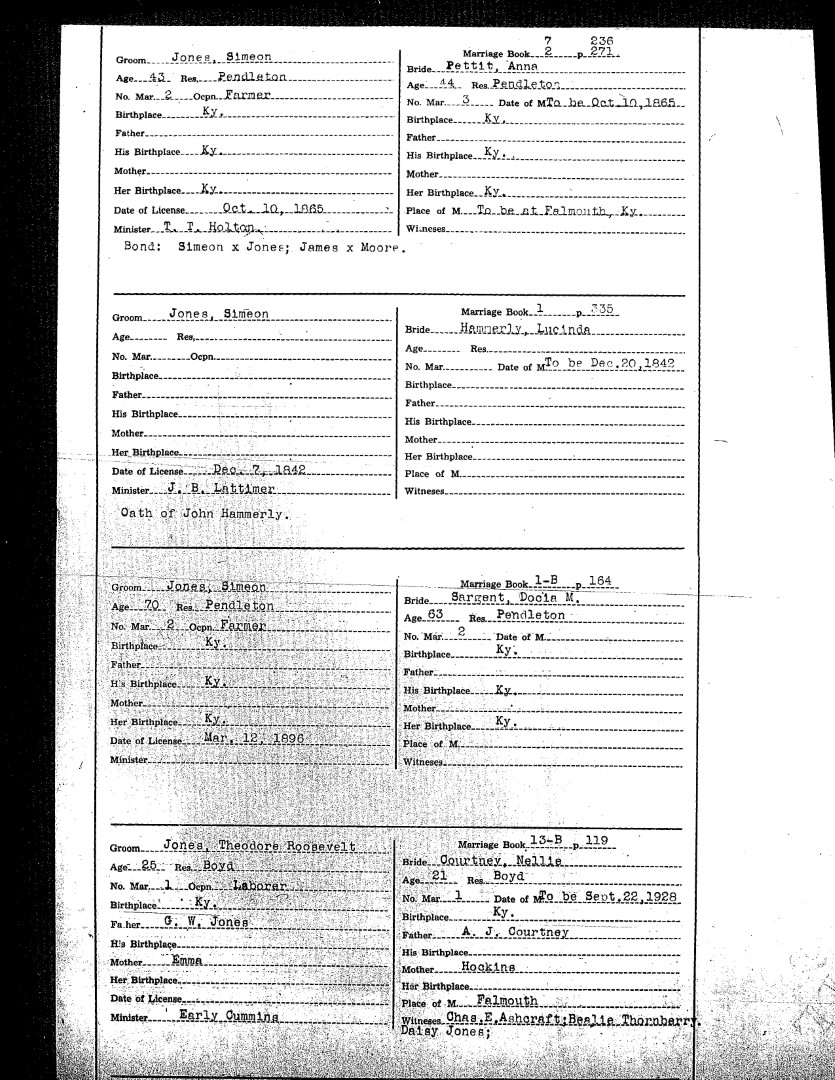 Groom Jones, Simeon
Age 43 Res. Pendleton
No. Mar. 2 Ocpn. Farmer
Birthplace Ky.
Father
His Birthplace Ky.
Mother
Her Birthplace Ky.
Date of License Oct. 10, 1865
Minister T. T. Holton.
7 236
Marriage Book 2 p. 271.
Bride Pettit, Anna
Age 44 Res. Pendleton
No. Mar. 3 Date of M. To be Oct.10,1865
Birthplace Ky.
Father
His Birthplace Ky.
Mother
Her Birthplace Ky.
Place of M. To be at Falmouth, Ky.
Witneses
Bond: Simeon x Jones; James x Moore.
Groom Jones, Simeon
Age Res.
No. Mar. Ocpn.
Birthplace
Father
His Birthplace
Mother
Her Birthplace
Date of License Dec. 7, 1842
Minister J. B. Lattimer
Marriage Book 1 p. 335
Bride Hammerly, Lucinda
Age Res.
No. Mar. Date of M. To be Dec.20,1842
Birthplace
Father
His Birthplace
Mother
Her Birthplace
Place of M.
Witneses
Oath of John Hammerly.
Groom Jones, Simeon
Age 70 Res. Pendleton
No. Mar. 2 Ocpn. Farmer
Birthplace Ky.
Father
His Birthplace Ky.
Mother
Her Birthplace Ky.
Date of License Mar. 12, 1896
Minister
Marriage Book 1-B p. 164
Bride Sargent, Docia M.
Age 63 Res. Pendleton
No. Mar. 2 Date of M.
Birthplace Ky.
Father
His Birthplace Ky.
Mother
Her Birthplace Ky.
Place of M.
Witneses
Groom Jones, Theodore Roosevelt
Age 25 Res. Boyd
No. Mar. 1 Ocpn. Laborer
Birthplace Ky.
Father G. W. Jones
His Birthplace
Mother Emma
Her Birthplace
Date of License
Minister Early Cummins
Marriage Book 13-B p. 119
Bride Courtney, Nellie
Age 21 Res. Boyd
No. Mar. 1 Date of M. To be Sept.22,1928
Birthplace Ky.
Father A. J. Courtney
His Birthplace
Mother Hockins
Her Birthplace
Place of M. Falmouth
Witneses Chas.E.Ashcraft;Beslie Thornberry.
Daisy Jones;